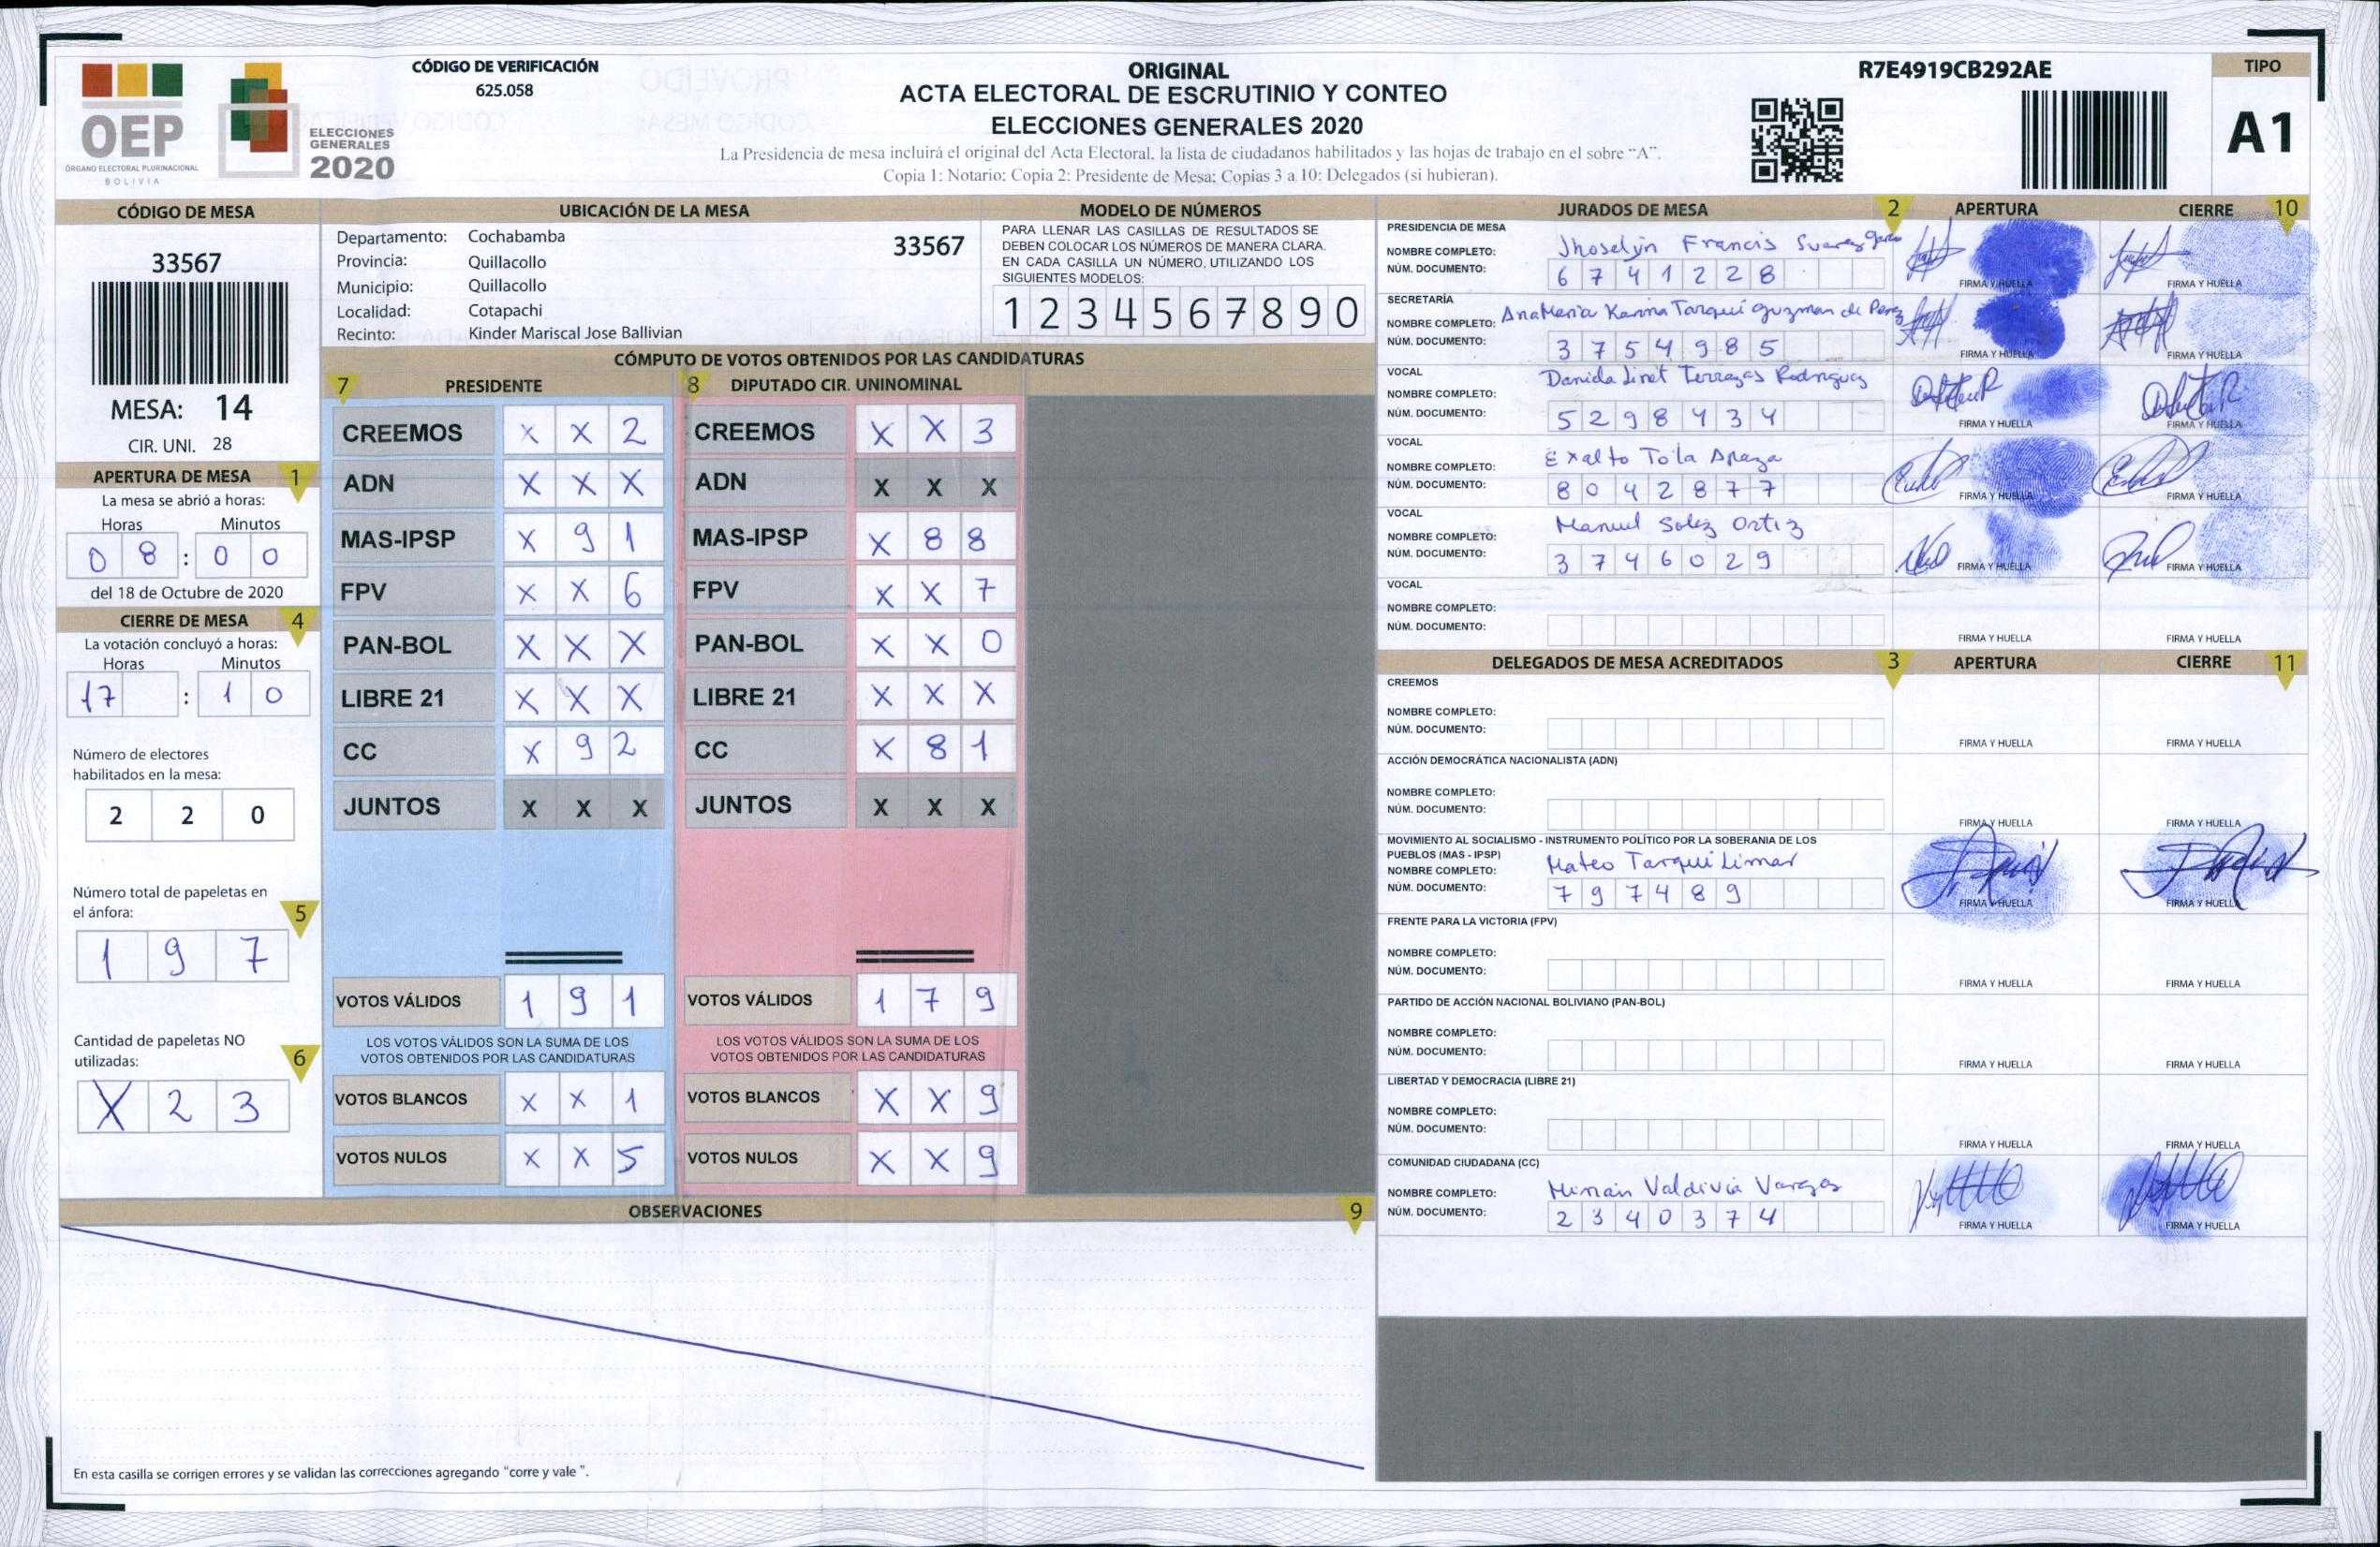 CÓDIGO DE VERIFICACIÓN
625.058
OEP
ÓRGANO ELECTORAL PLURINACIONAL
BOLIVIA
ELECCIONES
GENERALES
2020
ORIGINAL
ACTA ELECTORAL DE ESCRUTINIO Y CONTEO
ELECCIONES GENERALES 2020
La Presidencia de mesa incluirá el original del Acta Electoral, la lista de ciudadanos habilitados y las hojas de trabajo en el sobre “A”.
Copia 1: Notario; Copia 2: Presidente de Mesa; Copias 3 a 10: Delegados (si hubieran).
R7E4919CB292AE
TIPO
A1
CÓDIGO DE MESA
33567
MESA: 14
CIR. UNI. 28
APERTURA DE MESA 1
La mesa se abrió a horas:
Horas Minutos
0 8 : 0 0
del 18 de Octubre de 2020
CIERRE DE MESA 4
La votación concluyó a horas:
Horas Minutos
17 : 1 0
Número de electores
habilitados en la mesa:
2 2 0
Número total de papeletas en
el ánfora: 5
1 9 7
Cantidad de papeletas NO
utilizadas: 6
X 2 3
UBICACIÓN DE LA MESA
Departamento: Cochabamba 33567
Provincia: Quillacollo
Municipio: Quillacollo
Localidad: Cotapachi
Recinto: Kinder Mariscal Jose Ballivian
MODELO DE NÚMEROS
PARA LLENAR LAS CASILLAS DE RESULTADOS SE
DEBEN COLOCAR LOS NÚMEROS DE MANERA CLARA.
EN CADA CASILLA UN NÚMERO, UTILIZANDO LOS
SIGUIENTES MODELOS:
1 2 3 4 5 6 7 8 9 0
CÓMPUTO DE VOTOS OBTENIDOS POR LAS CANDIDATURAS
7 PRESIDENTE
CREEMOS X X 2
ADN X X X
MAS-IPSP X 9 1
FPV X X 6
PAN-BOL X X X
LIBRE 21 X X X
CC X 9 2
JUNTOS X X X
VOTOS VÁLIDOS 1 9 1
LOS VOTOS VÁLIDOS SON LA SUMA DE LOS
VOTOS OBTENIDOS POR LAS CANDIDATURAS
VOTOS BLANCOS X X 1
VOTOS NULOS X X 5
8 DIPUTADO CIR. UNINOMINAL
CREEMOS X X 3
ADN X X X
MAS-IPSP X 8 8
FPV X X 7
PAN-BOL X X 0
LIBRE 21 X X X
CC X 8 1
JUNTOS X X X
VOTOS VÁLIDOS 1 7 9
LOS VOTOS VÁLIDOS SON LA SUMA DE LOS
VOTOS OBTENIDOS POR LAS CANDIDATURAS
VOTOS BLANCOS X X 9
VOTOS NULOS X X 9
OBSERVACIONES 9
En esta casilla se corrigen errores y se validan las correcciones agregando “corre y vale ”.
JURADOS DE MESA 2 APERTURA CIERRE 10
PRESIDENCIA DE MESA
NOMBRE COMPLETO: Jhoselyn Francis Suarez
NÚM. DOCUMENTO: 6 7 4 1 2 2 8
FIRMA Y HUELLA FIRMA Y HUELLA
SECRETARÍA
NOMBRE COMPLETO: AnaMaria Karina Tarqui Guzman de Perez
NÚM. DOCUMENTO: 3 7 5 4 9 8 5
FIRMA Y HUELLA FIRMA Y HUELLA
VOCAL
NOMBRE COMPLETO: Daniela Linet Terrazas Rodriguez
NÚM. DOCUMENTO: 5 2 9 8 4 3 4
FIRMA Y HUELLA FIRMA Y HUELLA
VOCAL
NOMBRE COMPLETO: Exalto Tola Apaza
NÚM. DOCUMENTO: 8 0 4 2 8 7 7
FIRMA Y HUELLA FIRMA Y HUELLA
VOCAL
NOMBRE COMPLETO: Manuel Solez Ortiz
NÚM. DOCUMENTO: 3 7 4 6 0 2 9
FIRMA Y HUELLA FIRMA Y HUELLA
VOCAL
NOMBRE COMPLETO:
NÚM. DOCUMENTO:
FIRMA Y HUELLA FIRMA Y HUELLA
DELEGADOS DE MESA ACREDITADOS 3 APERTURA CIERRE 11
CREEMOS
NOMBRE COMPLETO:
NÚM. DOCUMENTO:
FIRMA Y HUELLA FIRMA Y HUELLA
ACCIÓN DEMOCRÁTICA NACIONALISTA (ADN)
NOMBRE COMPLETO:
NÚM. DOCUMENTO:
FIRMA Y HUELLA FIRMA Y HUELLA
MOVIMIENTO AL SOCIALISMO - INSTRUMENTO POLÍTICO POR LA SOBERANIA DE LOS
PUEBLOS (MAS - IPSP)
NOMBRE COMPLETO: Mateo Tarqui Limar
NÚM. DOCUMENTO: 7 9 7 4 8 9
FIRMA Y HUELLA FIRMA Y HUELLA
FRENTE PARA LA VICTORIA (FPV)
NOMBRE COMPLETO:
NÚM. DOCUMENTO:
FIRMA Y HUELLA FIRMA Y HUELLA
PARTIDO DE ACCIÓN NACIONAL BOLIVIANO (PAN-BOL)
NOMBRE COMPLETO:
NÚM. DOCUMENTO:
FIRMA Y HUELLA FIRMA Y HUELLA
LIBERTAD Y DEMOCRACIA (LIBRE 21)
NOMBRE COMPLETO:
NÚM. DOCUMENTO:
FIRMA Y HUELLA FIRMA Y HUELLA
COMUNIDAD CIUDADANA (CC)
NOMBRE COMPLETO: Valdivia Vargas
NÚM. DOCUMENTO: 2 3 4 0 3 7 4
FIRMA Y HUELLA FIRMA Y HUELLA